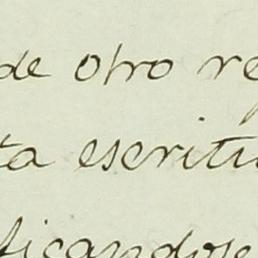 de otro re
ta escritu
ficandose